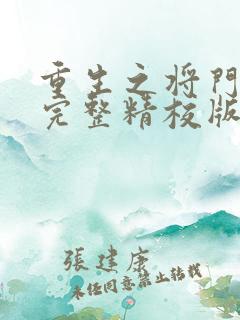 重生之将門
完整精校版
張建康
未经同意禁止转载